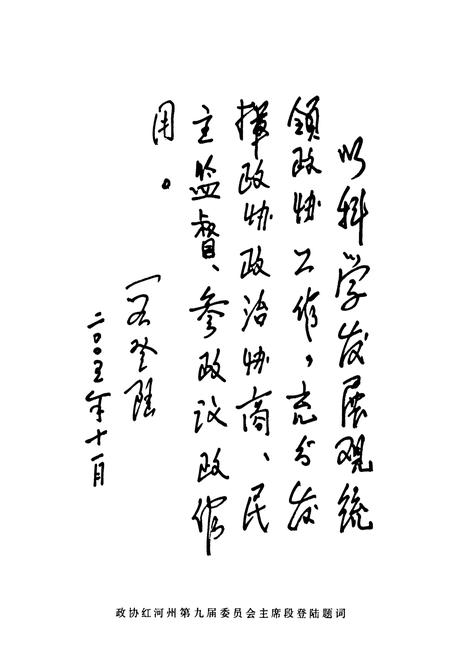 以科学发展观统
领政协工作，充分发
挥政协政治协商、民
主监督、参政议政作
用。
段登陆
二〇〇五年十一月
政协红河州第九届委员会主席段登陆题词